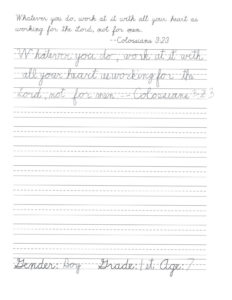 Whatever you do, work at it with all your heart as
working for the Lord, not for men.
--Colossians 3:23
Whatever you do, work at it with
all your heart as working for the
Lord, not for men -- Colossians 3:23
Gender: Boy Grade: 1st Age: 7